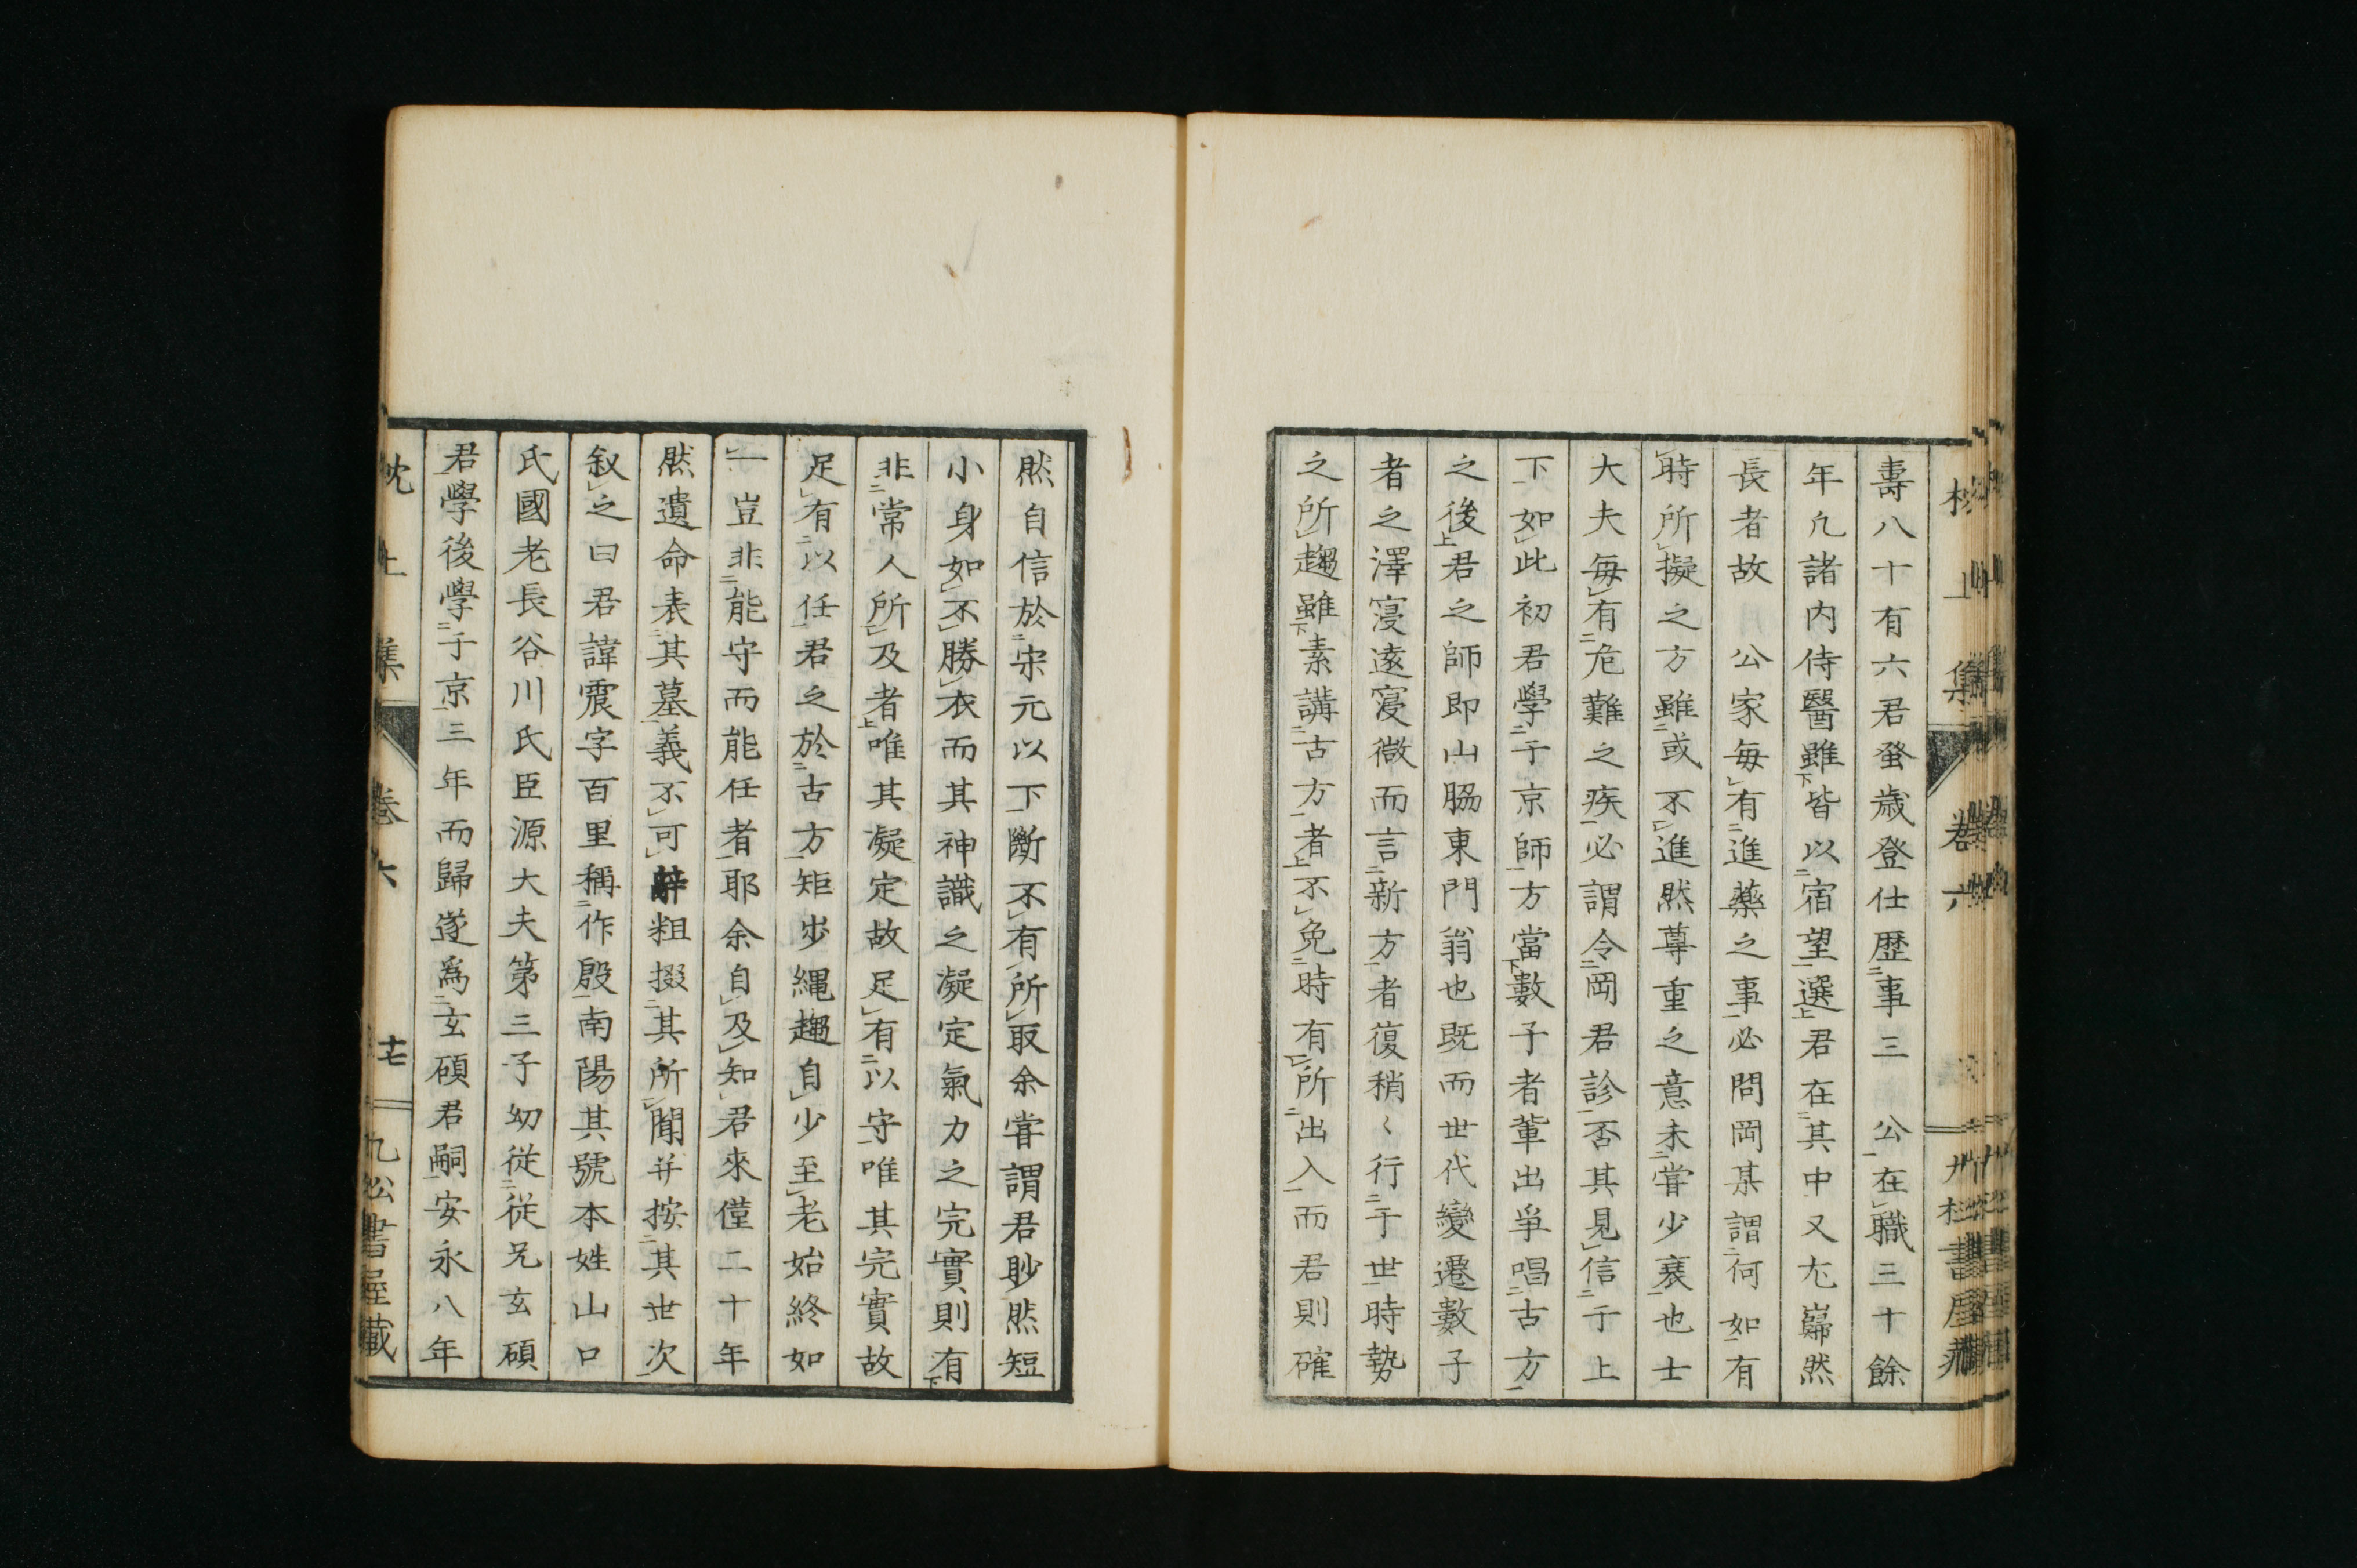 壽八十有六君發歳登仕歴事三　公在職三十餘
年凢諸内侍醫雖皆以宿望選君在其中又尤巋然
長者故　公家毎有進藥之事必問岡某謂何如有
時所擬之方雖或不進然尊重之意未嘗少衰也士
大夫毎有危難之疾必謂令岡君診否其見信于上
下如此初君學于京師方當數子者輩出爭唱古方
之後君之師即山脇東門翁也既而世代變遷數子
者之澤寖遠寖微而言新方者復稍〻行于世時勢
之所趨雖素講古方者不免時有所出入而君則確
然自信於宋元以下斷不有所取余嘗謂君眇然短
小身如不勝衣而其神識之凝定氣力之完實則有
非常人所及者唯其凝定故足有以守唯其完實故
足有以任君之於古方矩步繩趨自少至老始終如
一豈非能守而能任者耶余自及知君來僅二十年
然遺命表其墓義不可辭粗掇其所聞并按其世次
叙之曰君諱震字百里稱作殷南陽其號本姓山口
氏國老長谷川氏臣源大夫第三子幼從從兄玄碩
君學後學于京三年而歸遂爲玄碩君嗣安永八年
枕上集　卷六　十七　九松書屋藏